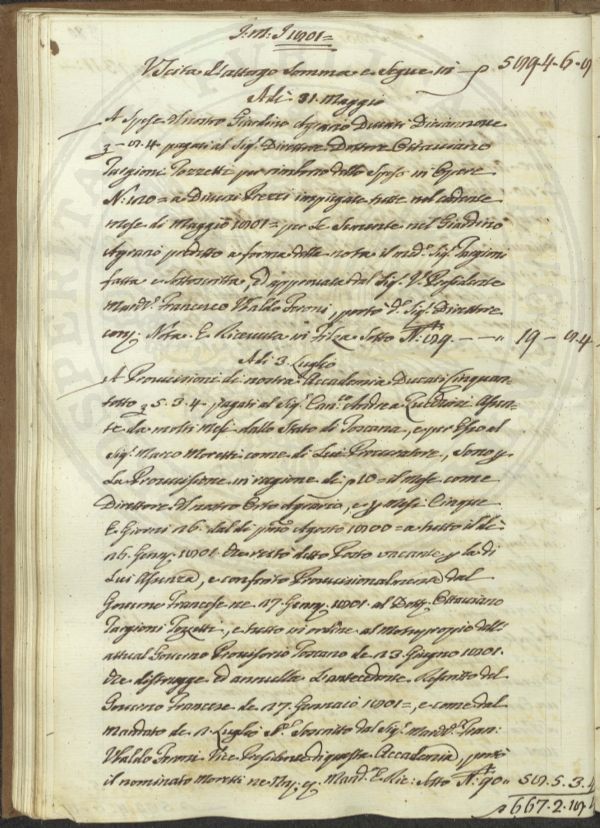 J: M: J 1801=
Uscita d'attergo Somma e Segue in — 5894-6-8
A dì 31 Maggio
A Spese del nostro Giardino Agrario Ducati Diciannove
8.4 pagati al Sig: Direttore Dottore Ottaviano
Targioni Tozzetti per rimborso di Spese in Opere
N: 120= a Diversi Prezzi impiegate nel cadente
mese di Maggio 1801= per le Semente nel Giardino
Agrario predetto a forma della nota il med: Sig: Targioni
fatta e sottoscritta, ed approvata dal Sig: V: Presidente
March: Francesco Ubaldo Feroni, portò d: Sig: Direttore
Nota E Ricevuta in Filza Sotto N: 89. — — 19 - 8.4
A dì 3 Luglio
A Provvisioni di nostra Accademia Ducati Cinquan-
totto 5.3.4 pagati al Sig: Can:co Andrea Zucchini Assen-
te da molti Mesi dallo Stato di Toscana, e per Esso al
Sig: Marco Moretti come di Lui Procuratore, Sono p
La Provvisione in ragione di 10= il Mese come
Direttore del nostro Orto Agrario, e p Mesi Cinque
E Giorni 26 dal dì pmo Agosto 1800= a tutto il dì
26. Genn: 1801. che restò detto Posto vacante p la di
Lui Assenza, e conferito Provvisionalmente dal
Governo Francese ne 27 Genn: 1801. al Dott: Ottaviano
Targioni Tozzetti, e tutto in ordine al Motuproprio dell'
attual Governo Provvisorio Toscano de 23 Giugno 1801.
che distrugge ed annulla L'antecedente Rescritto del
Governo Francese de 27 Gennaio 1801=, e come dal
Mandato de 2 Luglio Sd: Soscritto dal Sig: March: Fran:
Ubaldo Feroni Vice Presidente di questa Accademia, portò
il nominato Moretti Mand: E Ric: Sotto N: 90 " 58.5.3.4
667.2.